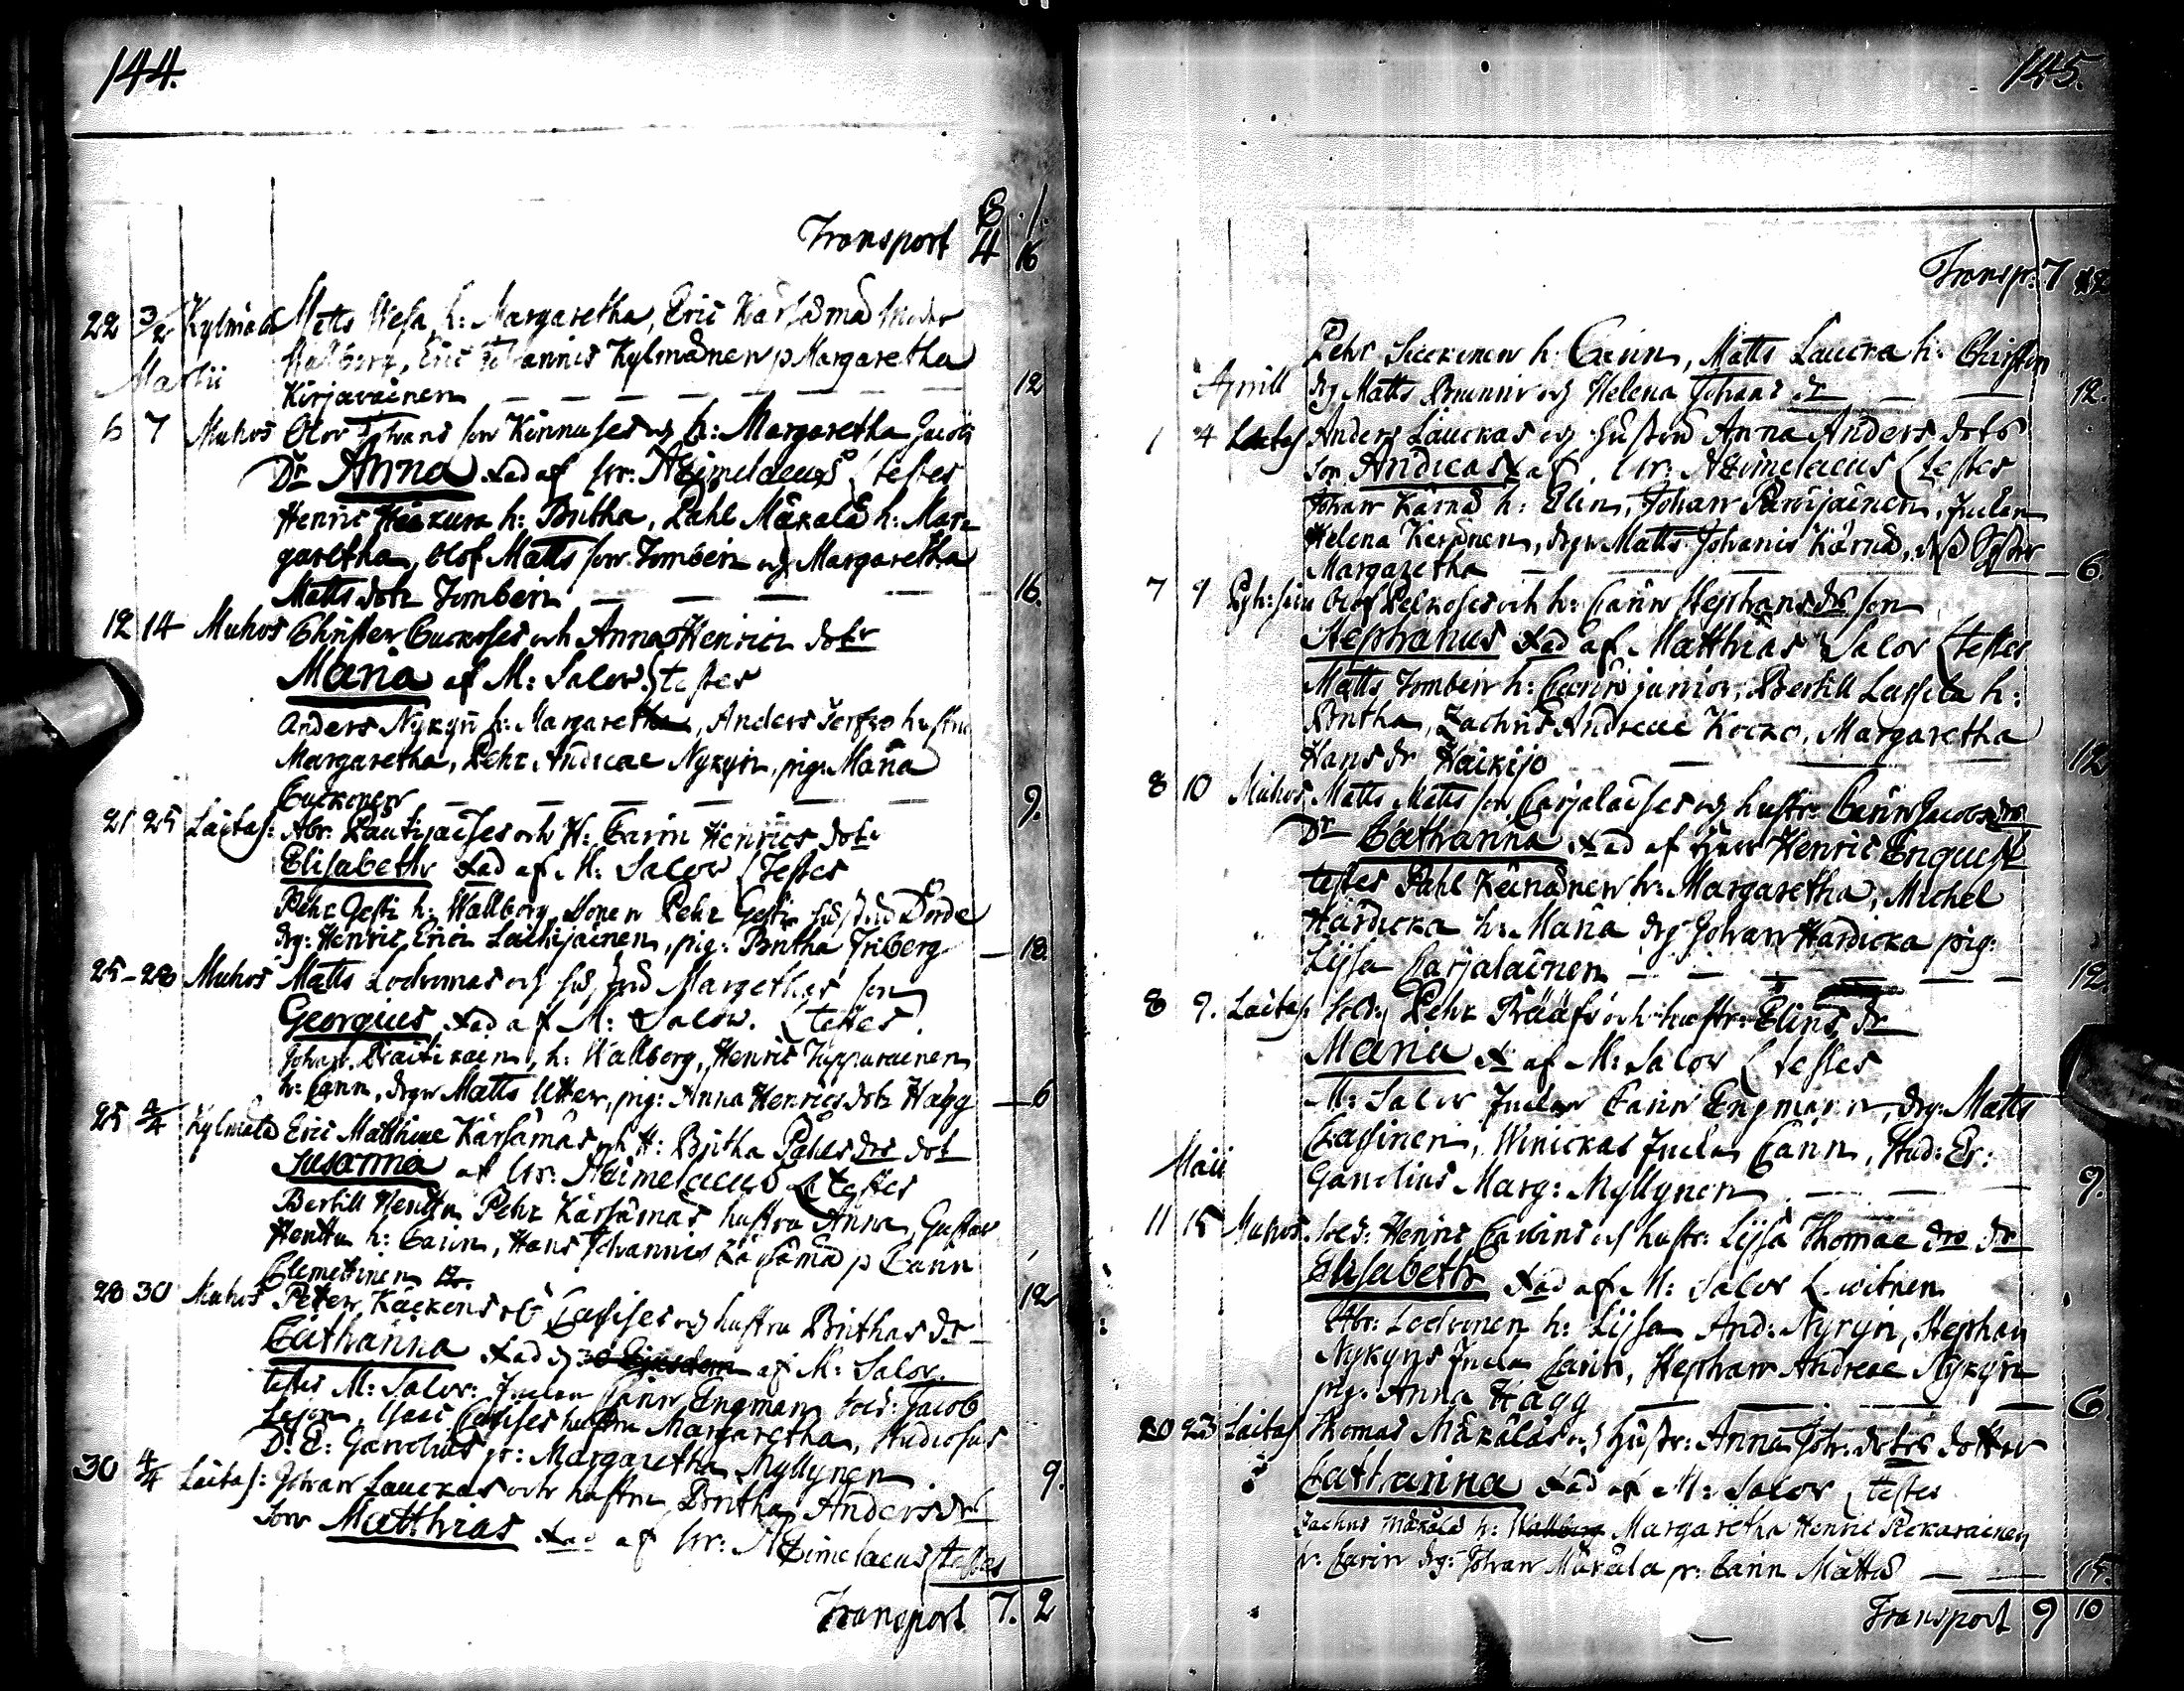 144.
☉ ./.
Transport 4 16
22 3/2 Kylmälä Matts Wesa h: Margaretha, Eric Kärsämä
Wallborg, Eric Johannis Kylmänen p Margaretha
Martii
Kirjavainen — — — — 12
6 7 Muhos Olof Johans son Konnuses och h: Margaretha Jacobs
Dr Anna Xad af hr: Heimelaeus testes
Henric h: Britha, Påhl Mäkälä h: Mar-
garetha, Olof Matts son Tomberin och Margaretha
Matts dotr Tomberin — — — — 16.
12 14 Muhos Christer Cuckoses och Anna Henrics dotr
Maria af M: Salov. testes
Anders Nykyri h: Margaretha, Anders hustru
Margaretha, Pehr Andreae Nykyri, pig: Maria
Cuckonen — — — — 9.
21 25 Laitas: Abr: Rautijaises och H: Carin Henrics dotr
Elisabeth Xad af M: Salov testes
Pehr Gesti h: Wallborg, Sonen Pehr Gesti hustru
drg: Henric Erici Leskijainen, pig: Britha Friberg — 18.
25-28 Muhos Matts Lodvonas och hustru Margethas son
Georgius Xad af M: Salov. testes
Johan h: Wallborg, Henric Tuppurainen
h: Carin, drgn Matts Utter, pig: Anna Henrics dotr Hägg — 6
25 2/4 Kylmälä Eric Matthiae Kärsämäs och H: Britha Påhls drs dotr
Susanna af hr: Heimelaeus testes
Bertill Henttu Pehr Kärsämäs hustru Anna, Gustav
Henttu h: Carin, Hans Johannis Kärsämä p Carin
Clemettinen 12
28 30 Muhos Petter Käckens och hustru Brithas dr
Catharina Xad d 30 Ejusdem af M: Salov.
testes M: Salov: Juelan Carin Engman Sold: Jacob
Lejon, hustru Margaretha, Studiosus
D: E: Ganelius p: Margaretha Myllynen 9.
30 4/4 Laitas: Johan Lauckas och hustru Britha Anders drs
Son Matthias Xad af hr: Heimelaeus testes
Transport 7. 2
145.
Transpr: 7
Pehr h: Carin, Matts Laucka h: Christin
Aprill drg Matts Brunnir och Helena Johans dr — — 12.
1 4 Laitas Anders Lauckas och Hustru Anna Anders dotrs
Son Andreas X af hr: Heimelaeus testes
Johan Kärnä h: Elin, Johan Juelan
Helena Keränen, drgn Matts Johannis Kärnä, Syster
Margaretha — — 6.
7 9 Olof Pelkoses och h: Carin Stephans drs son
Stephanus Xad af Matthias Salov testes
Matts Tomberin h: Carin junior, Bertill Lassila h:
Britha, Zachris Andreae Kocko, Margaretha
Hans dr Haickijo — — — 12
8 10 Muhos Matts Matts son Carjalaises och hustr: Carin Jacobs drs
Dr Catharina Xad af Herr Henric Enquist
testes Pahl Keinänen h: Margaretha, Michel
Härdicka h: Maria drg Johan Hardicka pig:
Lijsa Carjalainen — — — 12.
8 9. Laitas: Sold: Pehr och hustr: Elins dr
Maria X af M: Salov testes
M: Salov Juelan Carin Engman, drg: Matts
Cassinen, Winickas Juelan Carin, Stud: Er:
Maii
Ganelius Marg: Myllynen — — — 9.
11 15 Muhos. Sold: Henric och hustr: Lijsa Thomae drs dr
Elisabeth Xad af M: Salov witnen
Abr: Lodvonen h: Lijsa And: Nykyri, Stephan
Nykyris Juelan Carin, Stephan Andreae Nykyri
pig: Anna Hägg — — — 6
20 23 Laitas Thomas Mäkäläs och Hustr: Anna Joh: dotrs dotter
Catharina Xad af M: Salov testes
Zachris Mäkälä h: Wallborg Margaretha Henric Pickarainen
h: Carin drg: Johan Mäkälä p: Carin Mattsd — — 15.
Transport 9 10